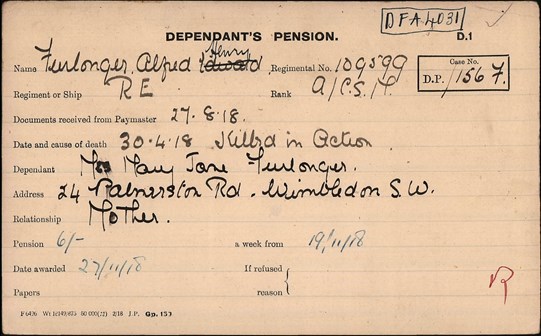 DFA4031
DEPENDANT'S PENSION. D.1
Henry
Name Furlonger. Alfred Edward Regimental No. 109599 Case No.
Regiment or Ship RE Rank A/C.S.M. D.P./1156 F.
Documents received from Paymaster 27.8.18.
Date and cause of death 30.4.18 Killed in Action
Dependant Mrs Mary Jane Furlonger.
Address 24 Palmerston Rd. Wimbledon S.W.
Relationship Mother.
Pension 6/- a week from 19/11/18
Date awarded 27/11/18 If refused
Papers reason
R
F 6426 60 000 2/18 J.P. Gp. 153